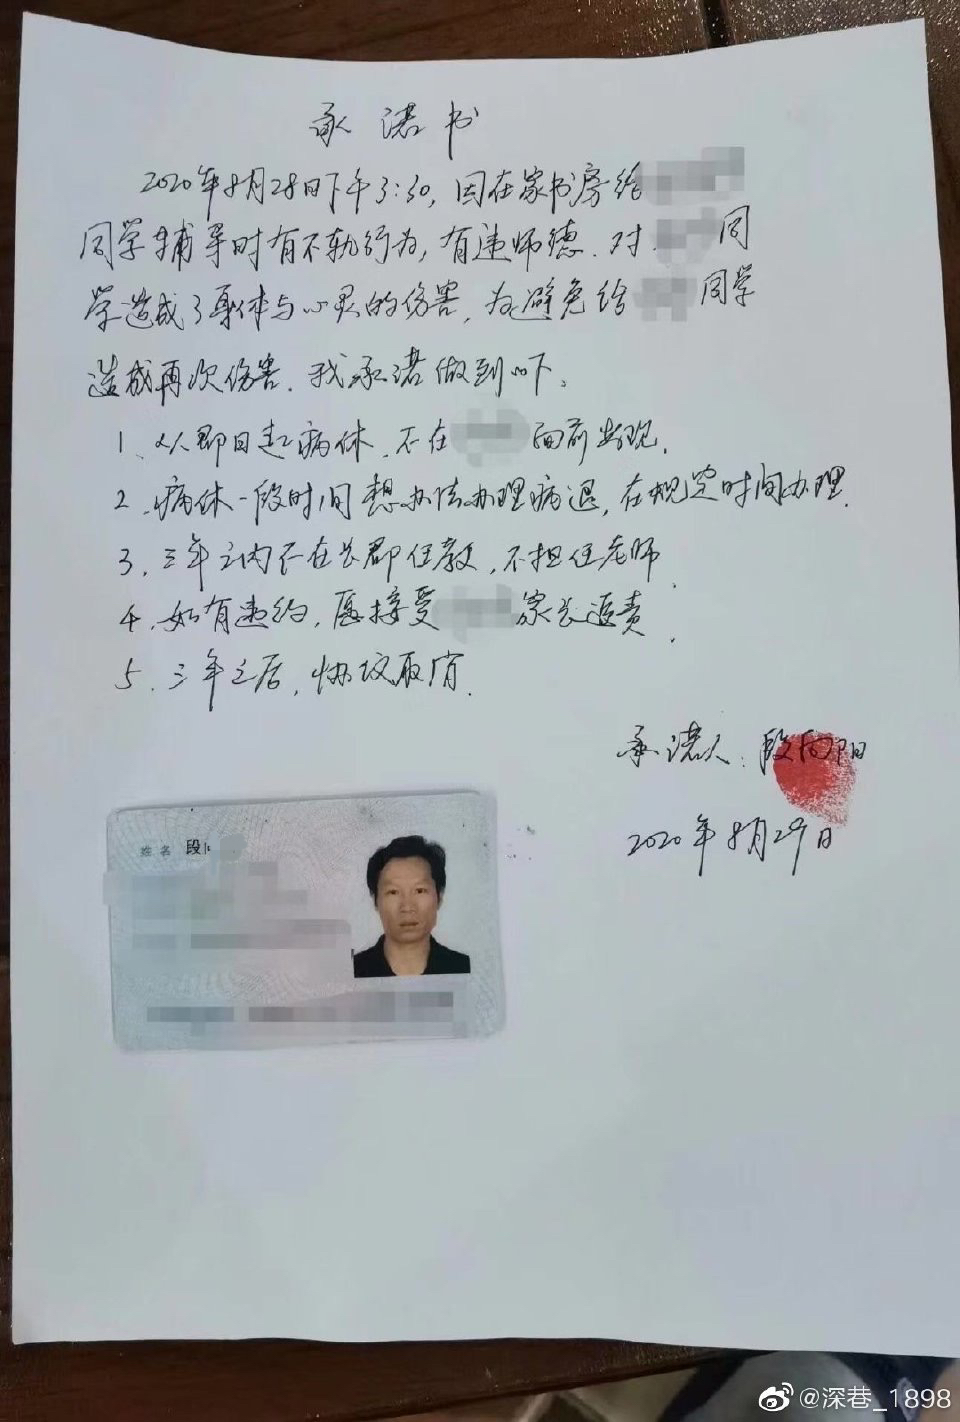 承诺书
2020年8月28日下午3:30,因在家书房给
同学辅导时有不轨行为,有违师德.对 同
学造成了身体与心灵的伤害,为避免给 同学
造成再次伤害.我承诺做到以下、
1、从即日起病休,不在 面前出现.
2、病休一段时间想办法办理病退,在规定时间办理.
3、三年之内不在长郡任教,不担任老师.
4、如有违约,愿接受 家长追责.
5.三年之后,协议取消.
承诺人:段向阳
2020年8月29日
姓名 段
@深巷_1898